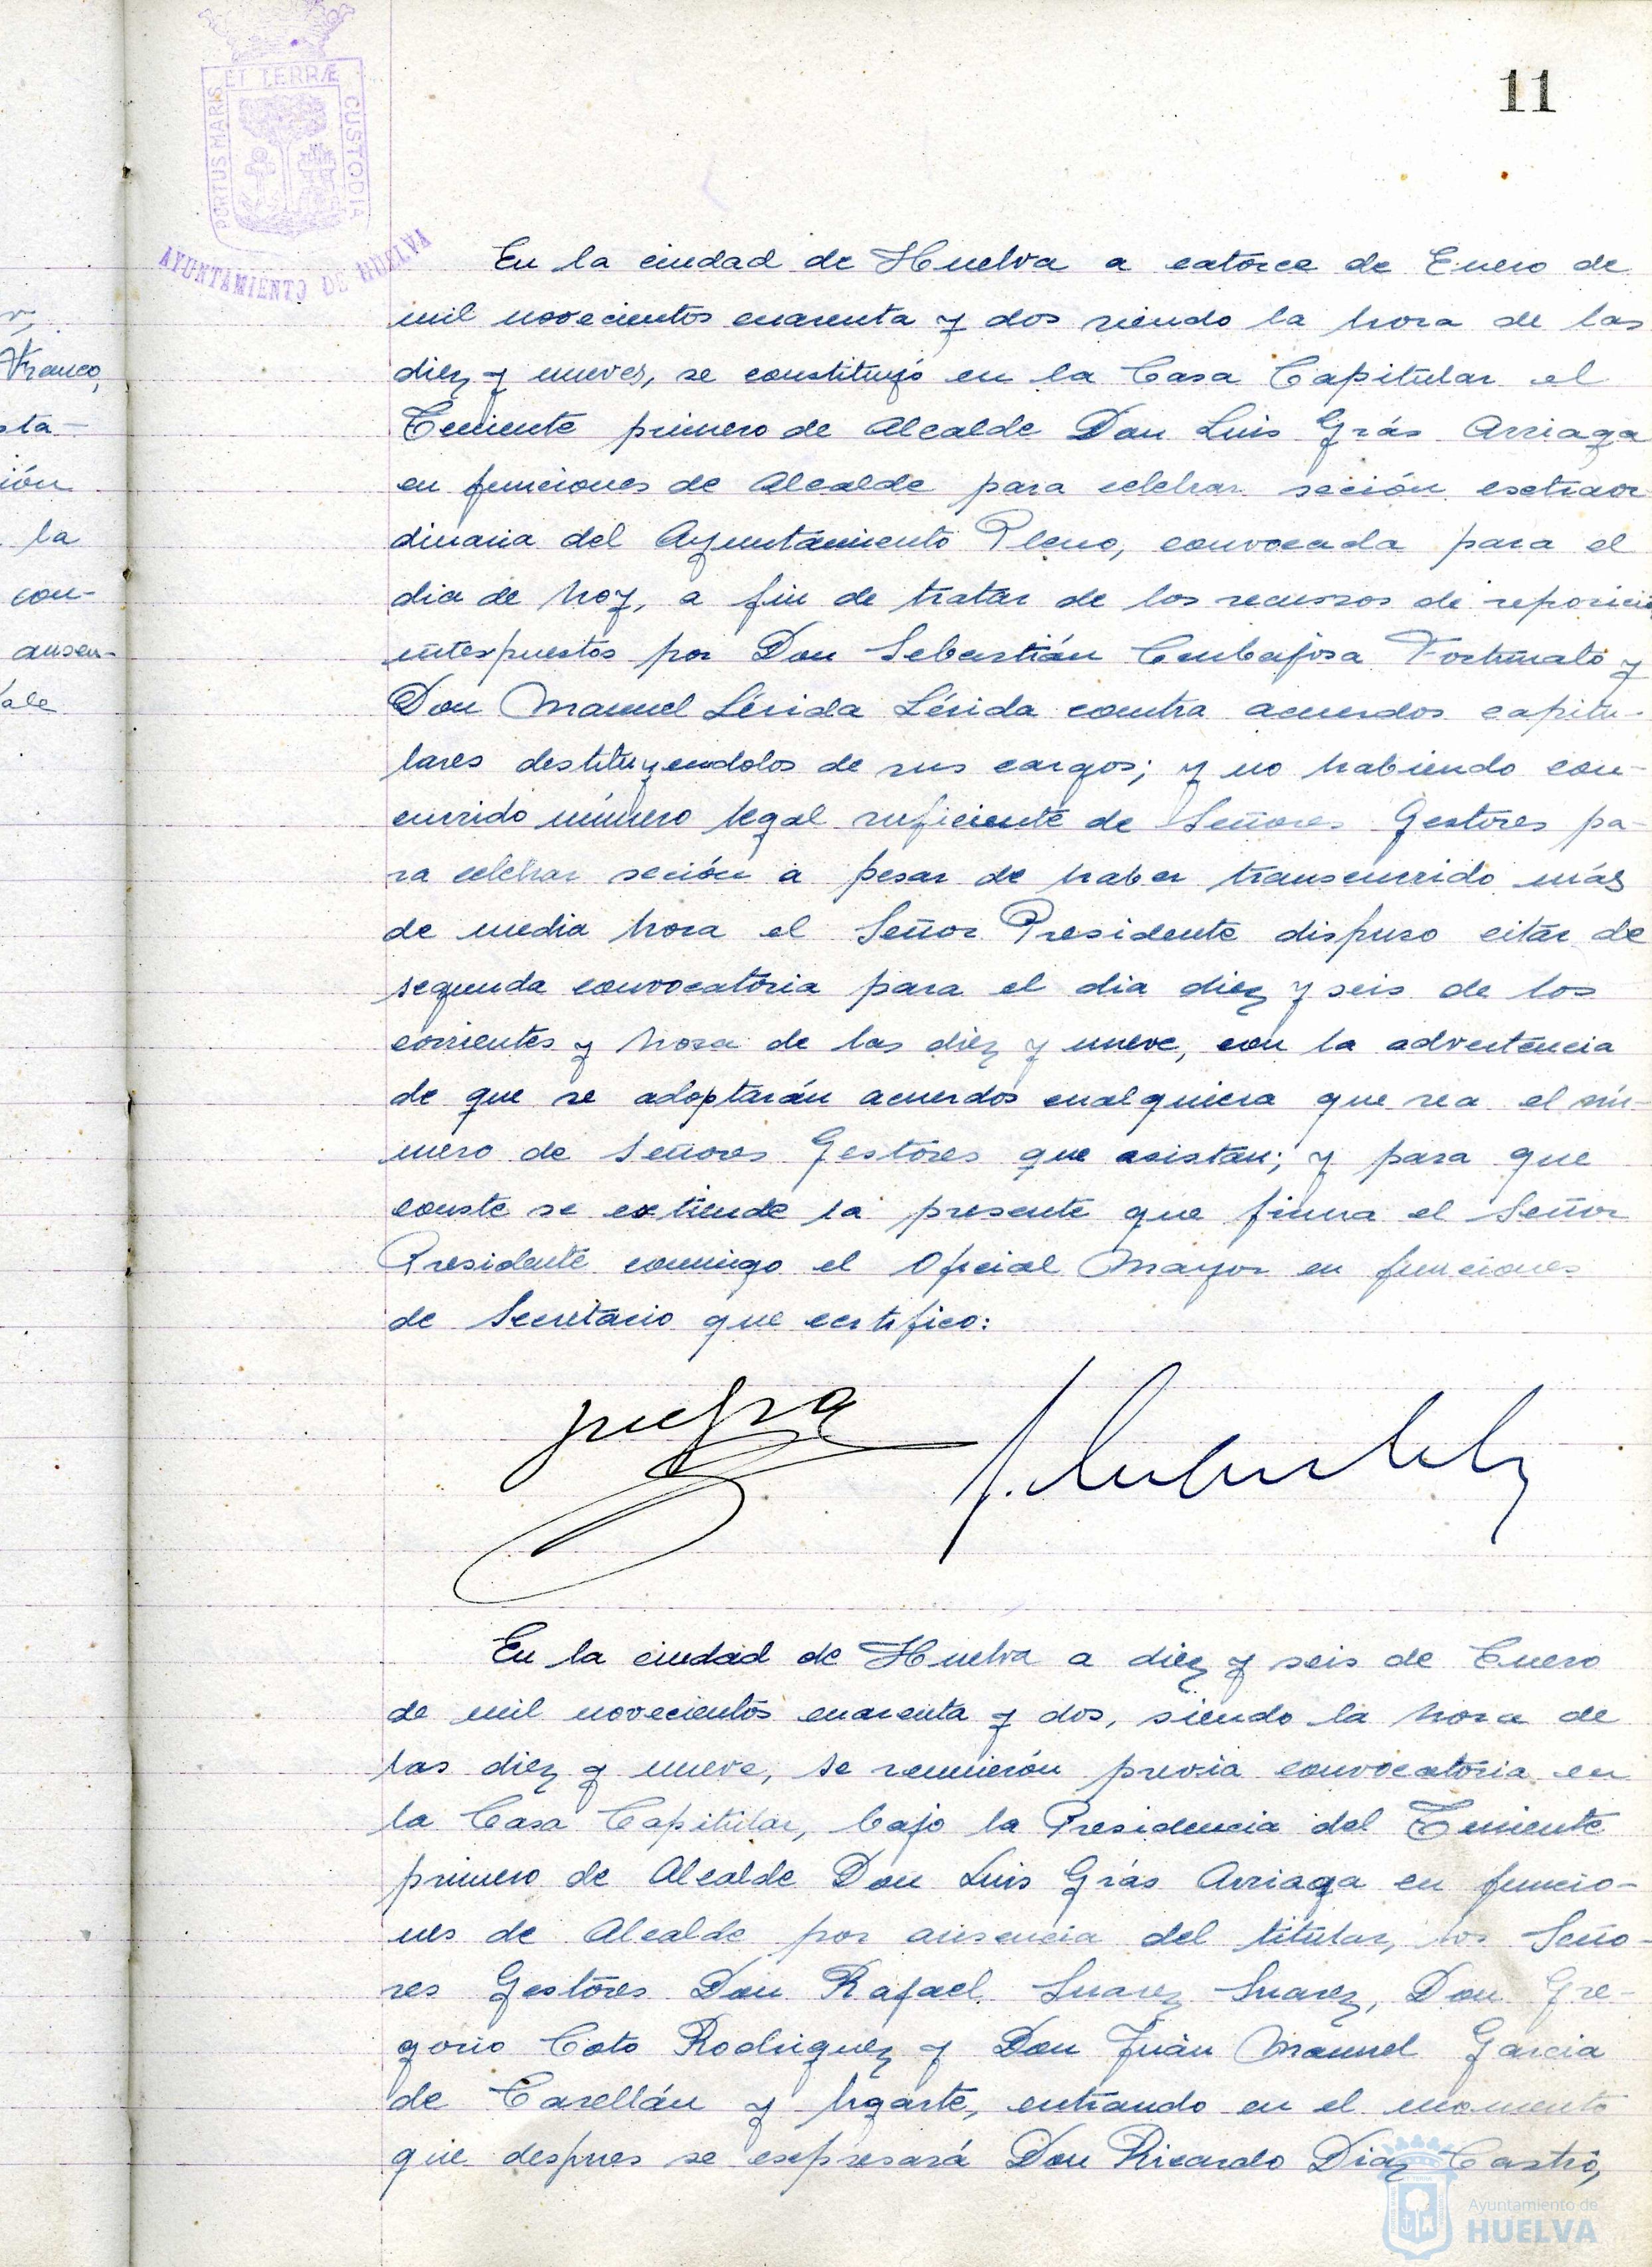 11
PORTUS MARIS ET TERRÆ CUSTODIA
AYUNTAMIENTO DE HUELVA
Franco,
sta-
ión
la
con-
ausen-
En la ciudad de Huelva a catorce de Enero de
mil novecientos cuarenta y dos siendo la hora de las
diez y nueves, se constituyó en la Casa Capitular el
Teniente primero de Alcalde Don Luis Grás Arriaga
en funciones de Alcalde para celebrar seción esctraor
dinaria del Ayuntamiento Pleno, convocada para el
dia de hoy, a fin de tratar de los recursos de reposició
interpuestos por Don Sebastián Carbajosa Fortunato y
Don Manuel Lérida Lérida contra acuerdos capitu-
lares destituyendolos de sus cargos; y no habiendo con-
currido número legal suficiente de Señores Gestores pa-
ra celebrar seción a pesar de haber transcurrido más
de media hora el Señor Presidente dispuso citar de
segunda convocatoria para el dia diez y seis de los
corrientes y hora de las diez y nueve, con la advertencia
de que se adoptarán acuerdos cualquiera que sea el nú-
mero de Señores Gestores que asistan; y para que
conste se extiende la presente que firma el Señor
Presidente conmigo el Oficial Mayor en funciones
de Secretario que certifico:
En la ciudad de Huelva a diez y seis de Enero
de mil novecientos cuarenta y dos, siendo la hora de
las diez y nueve, se reunierón previa convocatoria en
la Casa Capitular, bajo la Presidencia del Teniente
primero de Alcalde Don Luis Grás Arriaga en funcio-
nes de Alcalde por ausencia del titular, los Seño-
res Gestores Don Rafael Suarez Suarez, Don Gre-
gorio Coto Rodriguez y Don Juan Manuel Garcia
de Casellán y Ugarte, entrando en el momento
que despues se escpresará Don Ricardo Diaz Castro,
Ayuntamiento de
HUELVA